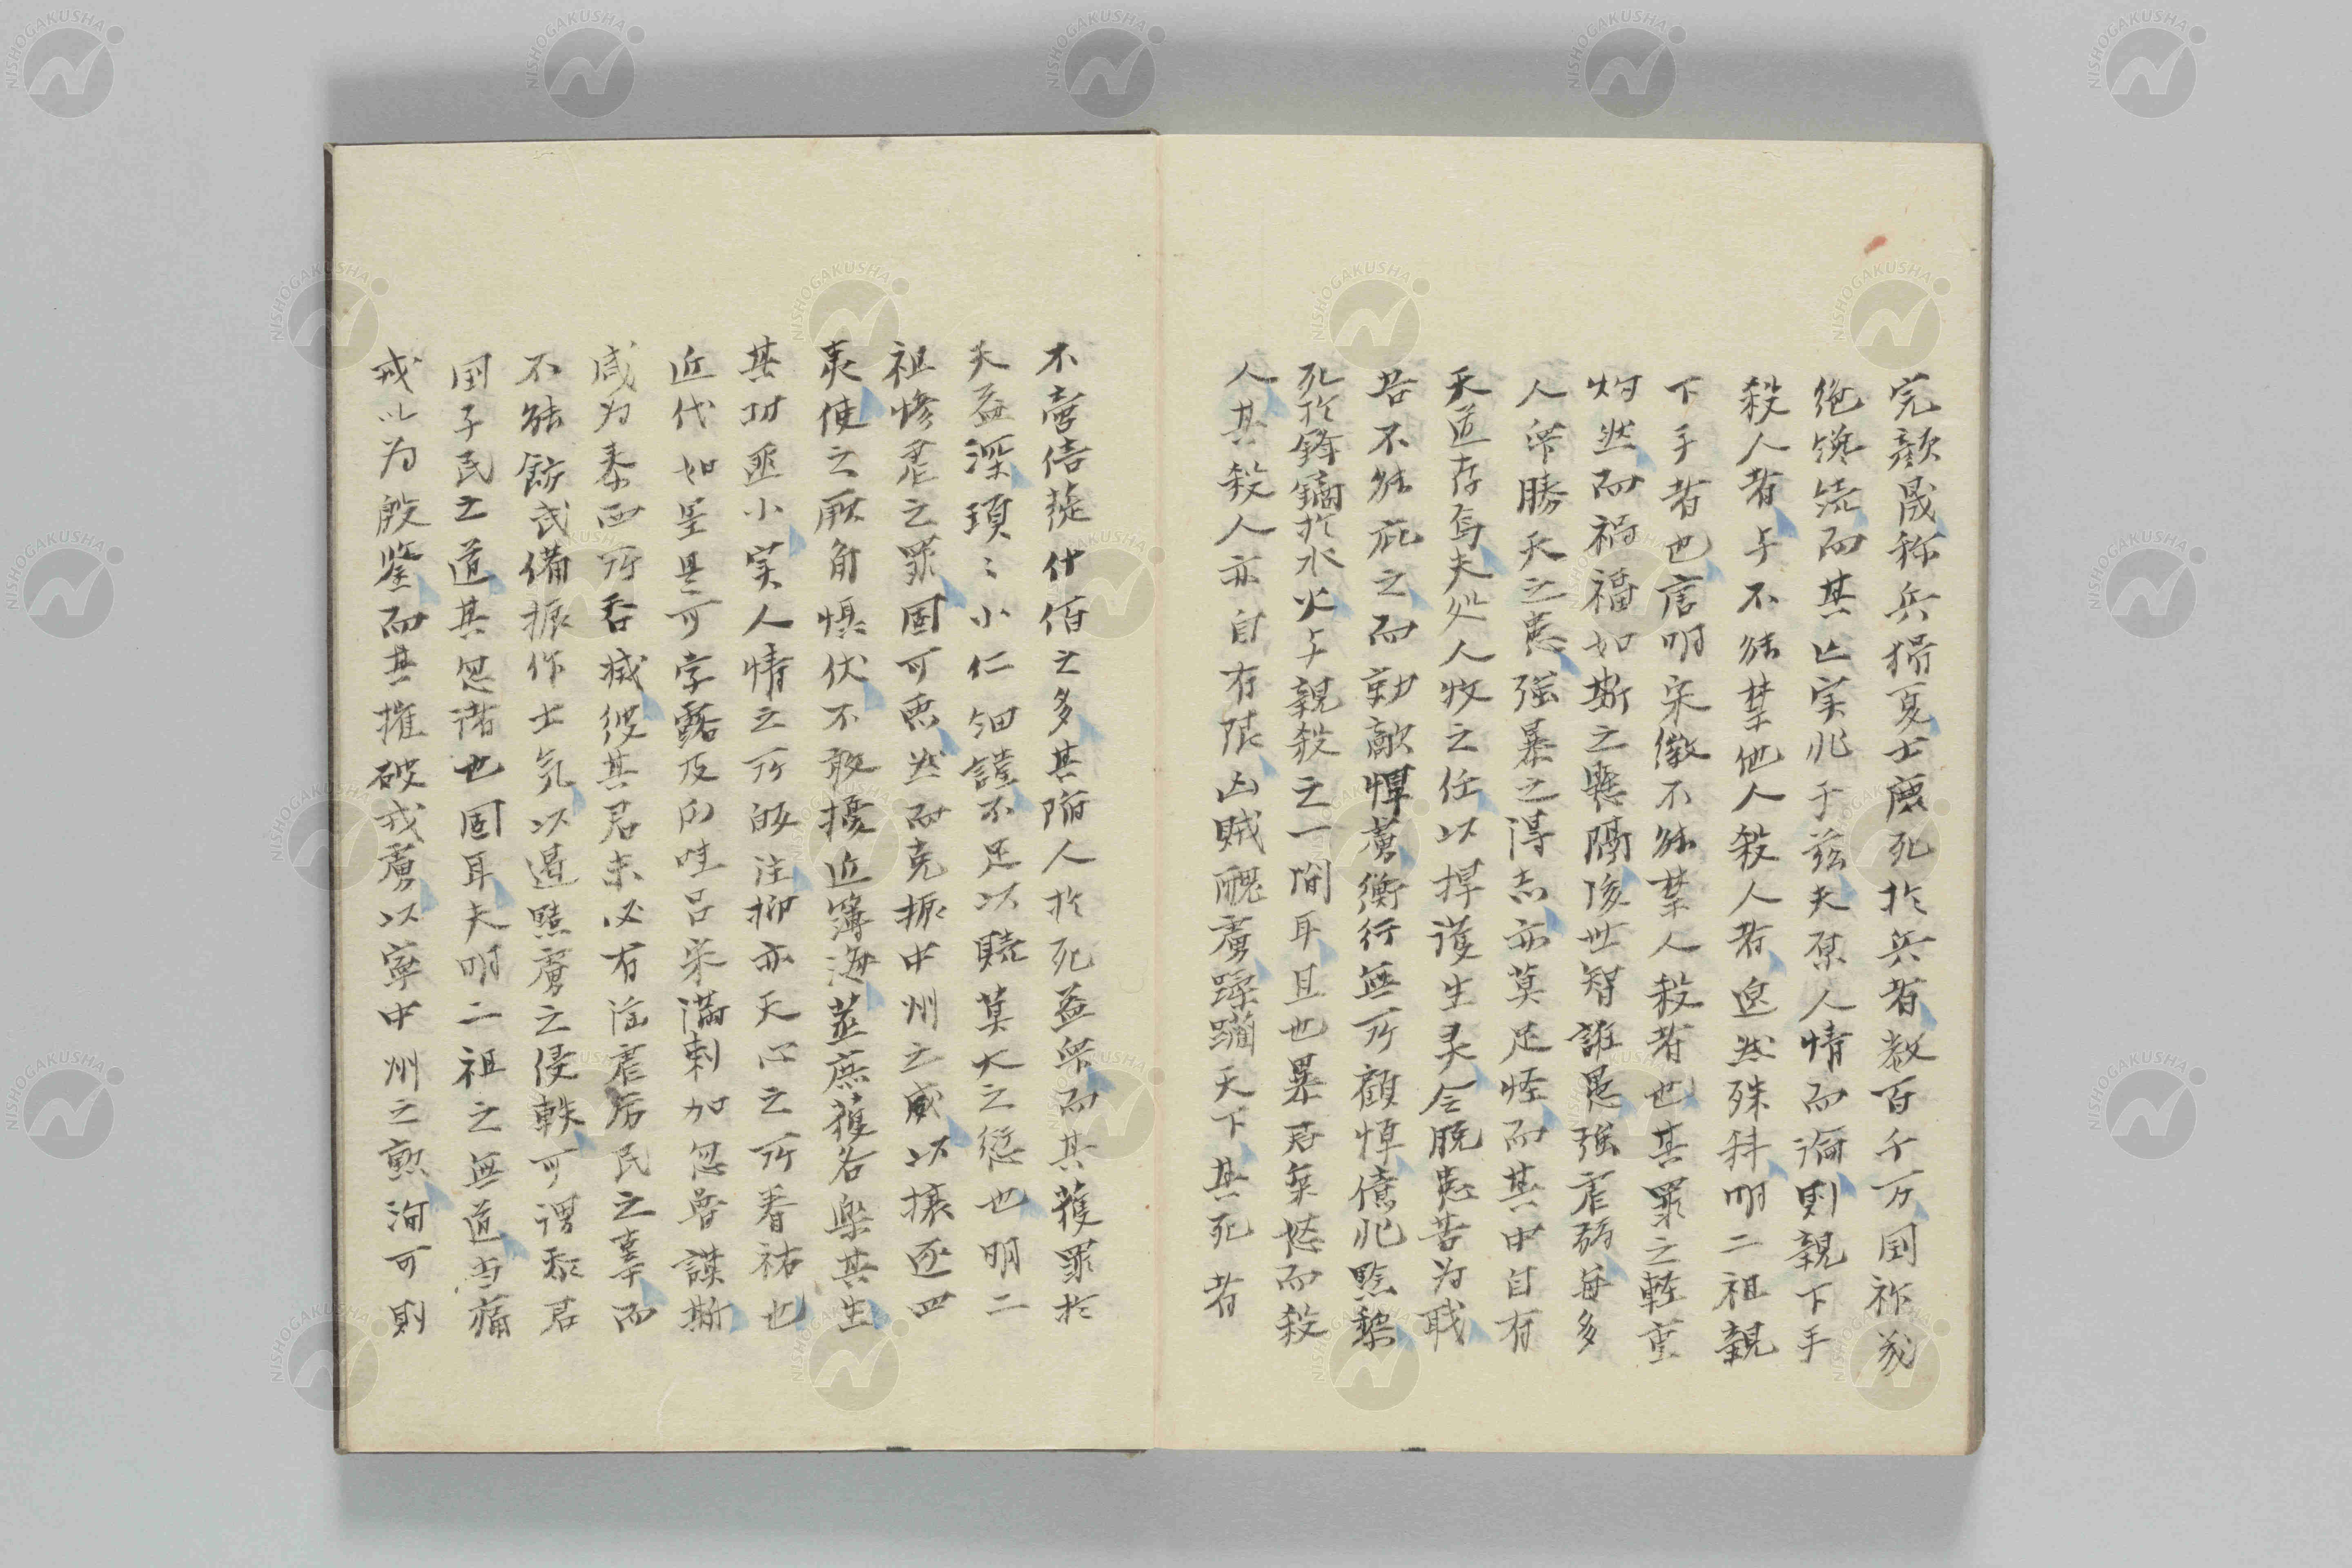 完顔晟称兵猾夏士庶死於兵者数百千万国祚茇
絶纔続而其亡実兆于茲夫原人情而論則親下手
殺人者与不能禁他人殺人者逈然殊科明二祖親
下手者也唐明宋徽不能禁人殺者也其罪之軽重
灼然而禍福如斯之懸隔後世智誰愚強虐弱毎多
人衆勝天之患強暴之得志亦莫足怪而其中自有
天道存焉夫処人牧之任以捍護生灵令脱患苦为職
若不能庇之而勍敵悍虜衡行無所顧惮億兆黔黎
死於鋒鏑於水火与親殺之一間耳且也暴君棄悠而殺
人其殺人亦自有限凶賊醜虜蹂躪天下其死者
不啻倍蓰什佰之多其陥人於死益衆而其獲罪於
天益深瑣々小仁細謹不足以贖莫大之愆也明二
祖惨虐之罪固可悪然而克振中州之威以攘逐四
夷使之厥角慴伏不敢擾近簿海蒸庶獲各楽其生
其功亟小実人情之所皈注抑亦天心之所眷祐也
近代如星是可字露及的哇呂宋満剌加忽魯謨斯
咸为泰西所呑滅彼其君未必有淫虐厉民之辜而
不能飭武備振作士気以遏黠虜之侵軼可謂忝君
国子民之道其忽諸也固耳夫明二祖之無道当痛
戒以为殷鑒而其摧破戎虜以寧中州之勲洵可則